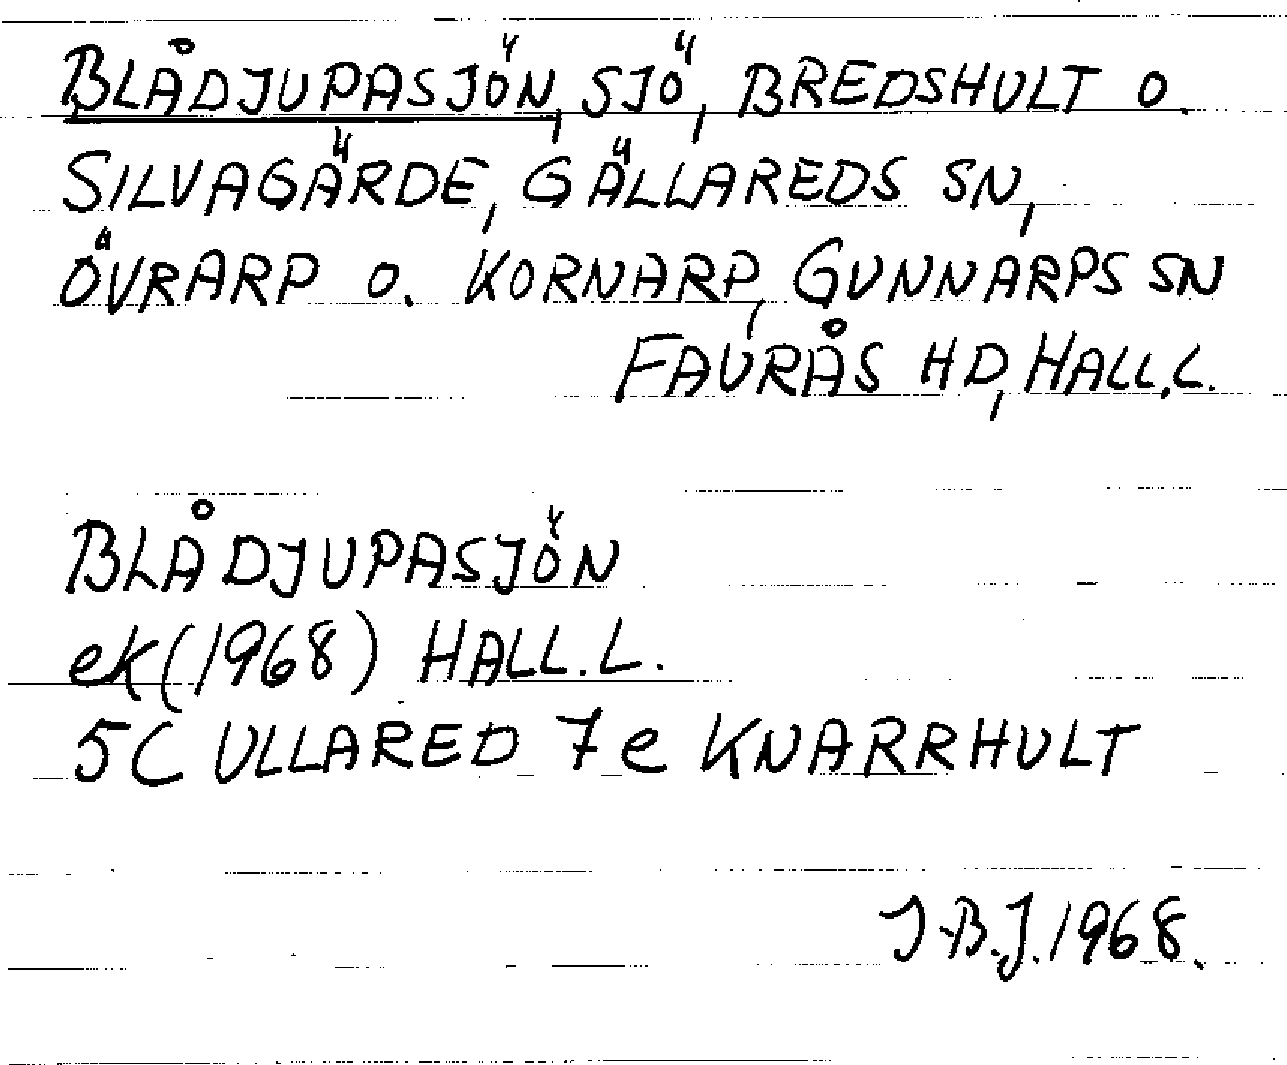 BLÅDJUPASJÖN, SJÖ, BREDSHULT O.
SILVAGÄRDE, GÄLLAREDS SN,
ÖVRARP O. KORNARP, GUNNARPS SN
FAURÅS HD, HALL.L.
BLÅDJUPASJÖN
ek (1968) HALL.L.
5C ULLARED 7e KNARRHULT
I-B.J. 1968.